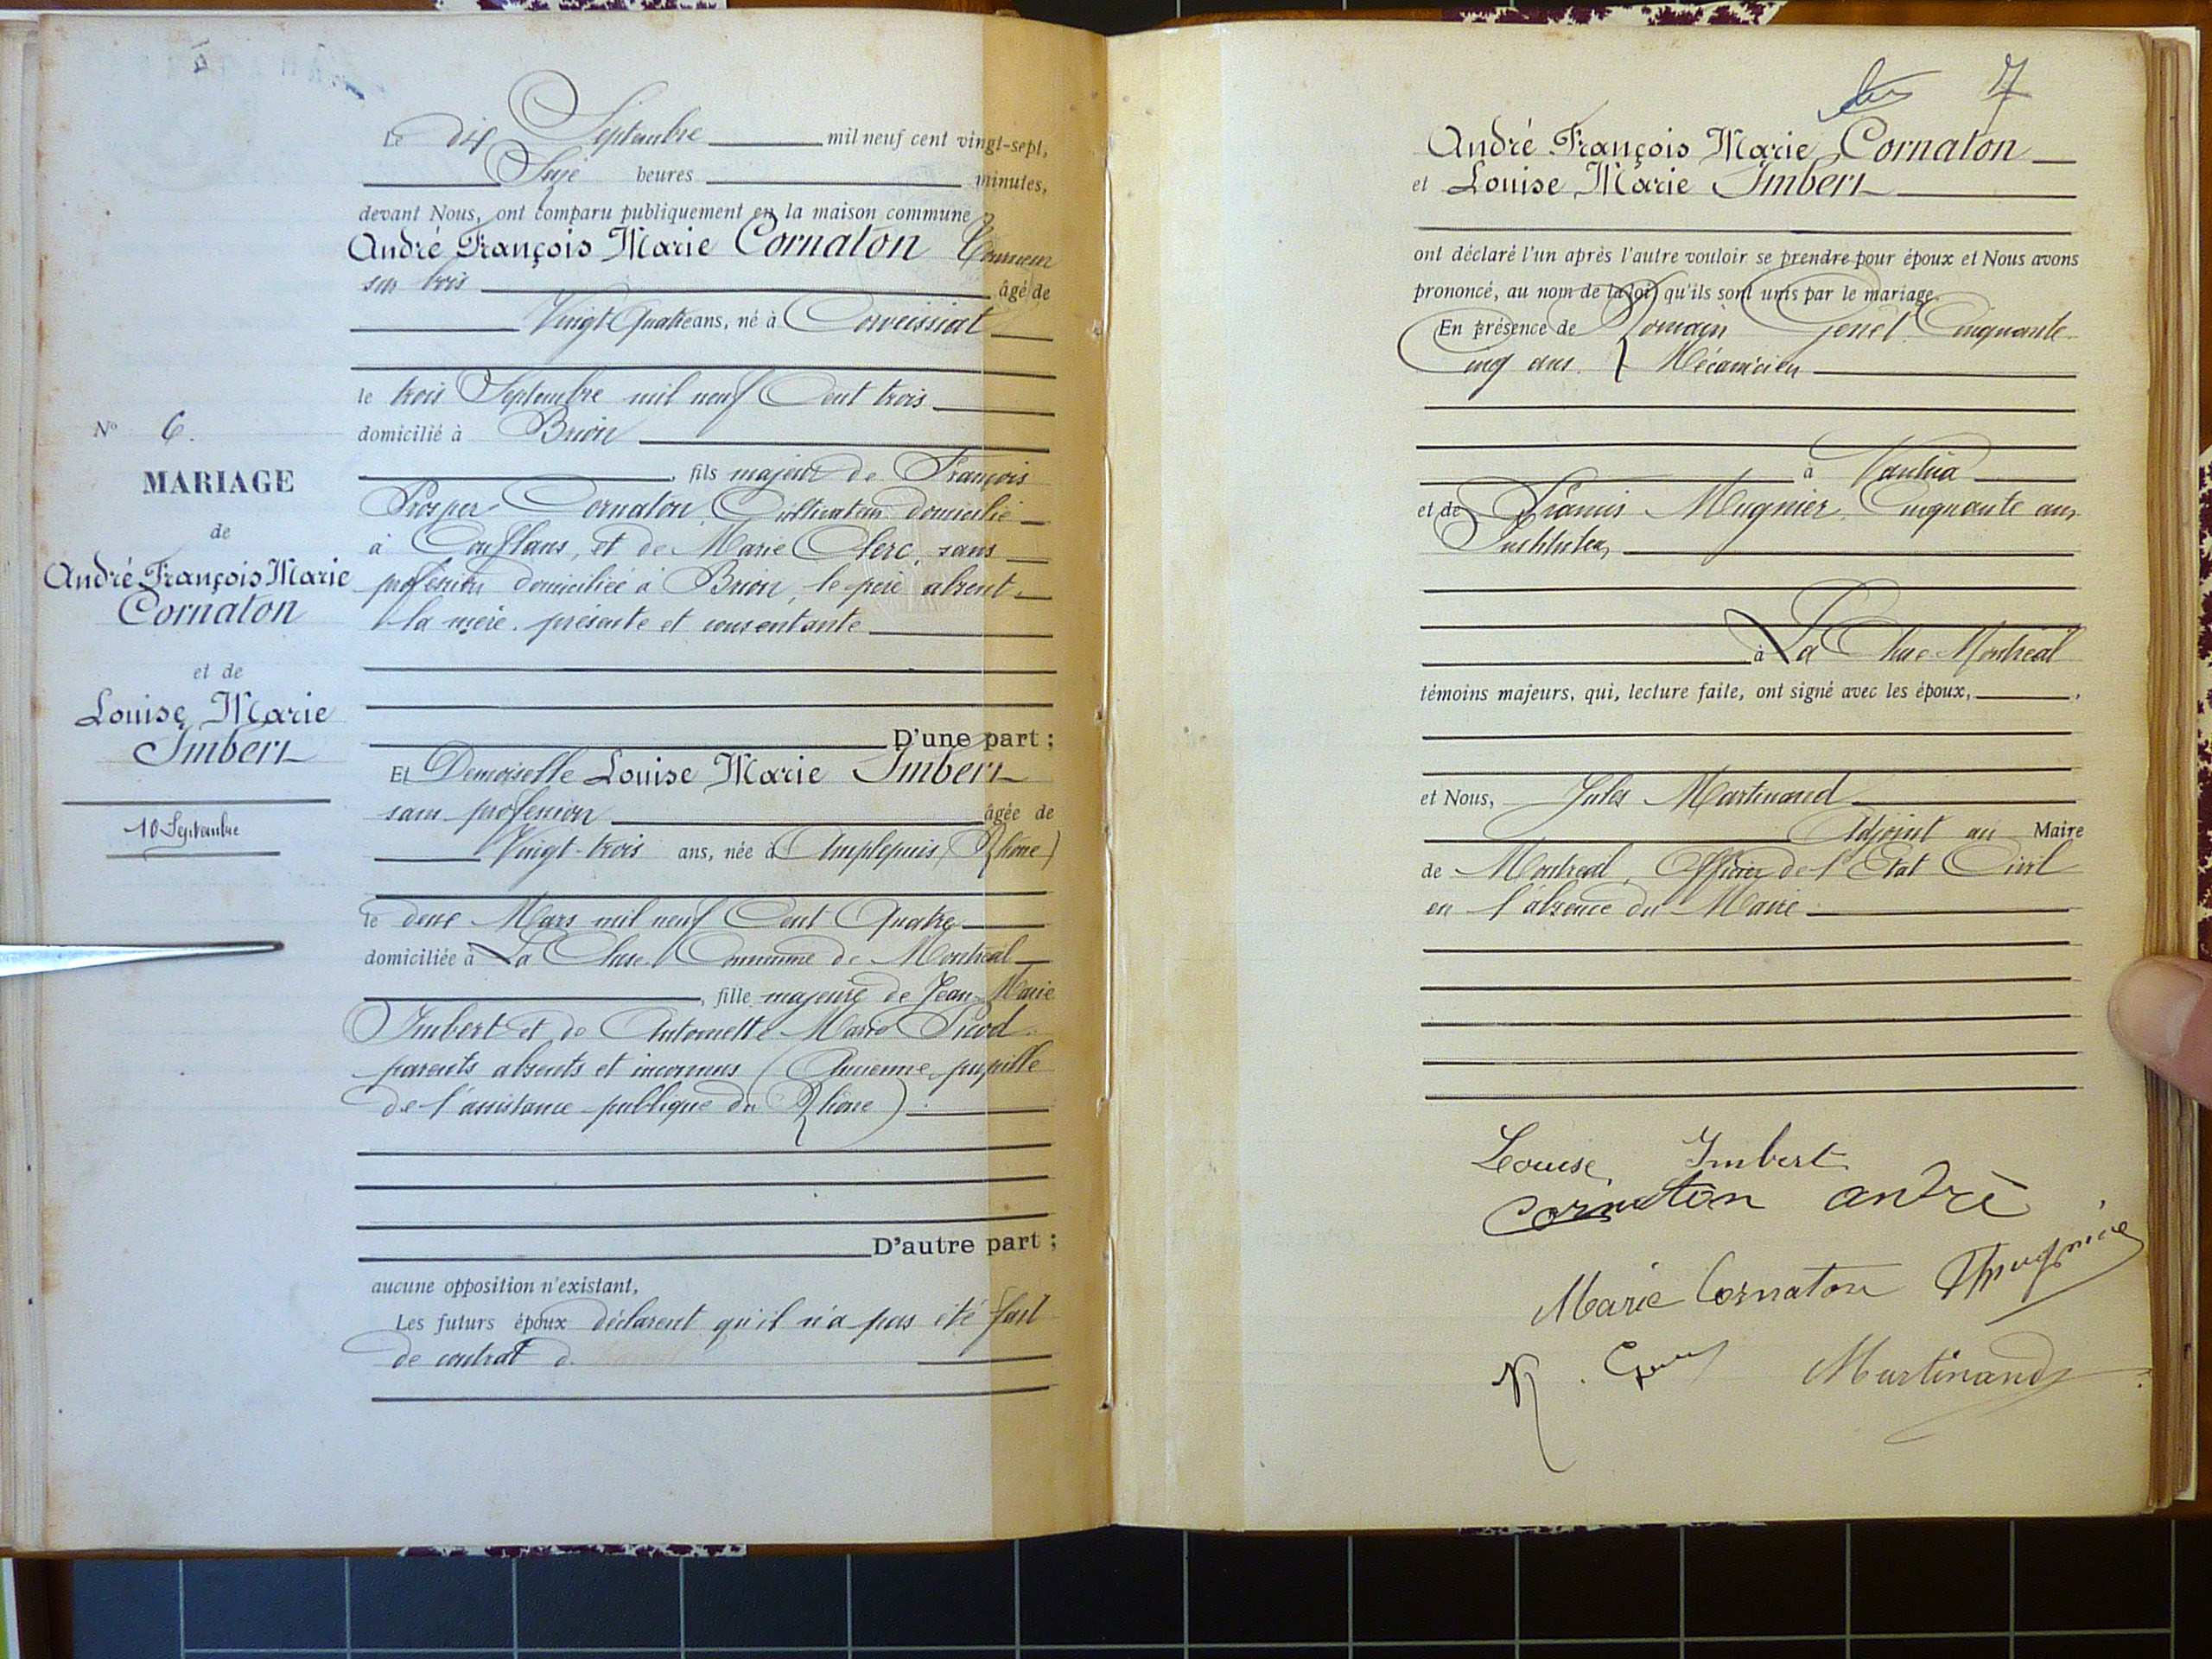 Le dix Septembre mil neuf cent vingt-sept,
Seize heures minutes,
devant Nous, ont comparu publiquement en la maison commune
André François Marie Cornaton Tourneur
sur bois âgé de
Vingt Quatre ans, né à Corveissiat
le trois Septembre mil neuf Cent trois
domicilié à Brion
fils majeur de François
Prosper Cornaton, Cultivateur domicilié
à Conflans, et de Marie Clerc, sans
profession domiciliée à Brion, le père absent,
la mère présente et consentante
D'une part ;
Et Demoiselle Louise Marie Imbert
sans profession âgée de
Vingt-trois ans, née à Amplepuis (Rhône)
le deux Mars mil neuf Cent Quatre
domiciliée à La Cluse Commune de Montréal
, fille majeure de Jean-Marie
Imbert et de Antoinette Marie Picod
parents absents et inconnus (Ancienne pupille
de l'assistance publique du Rhône)
D'autre part ;
aucune opposition n'existant,
Les futurs époux déclarent qu'il n'a pas été fait
de contrat d
N° 6.
MARIAGE
de
André François Marie
Cornaton
et de
Louise Marie
Imbert
10 Septembre
7
André François Marie Cornaton
et Louise Marie Imbert
ont déclaré l'un après l'autre vouloir se prendre pour époux et Nous avons
prononcé, au nom de la loi, qu'ils sont unis par le mariage.
En présence de Romain Genêt Cinquante
Cinq ans Mécanicien
à Nantua
et de Francis Mugnier, Cinquante ans,
Instituteur
à La Cluse Montréal
témoins majeurs, qui, lecture faite, ont signé avec les époux,
et Nous, Jules Martinand
Adjoint au Maire
de Montréal, Officier de l'Etat Civil
en l'absence du Maire
Louise Imbert
Cornaton andré
Marie Cornaton Mugnier
R. Martinand